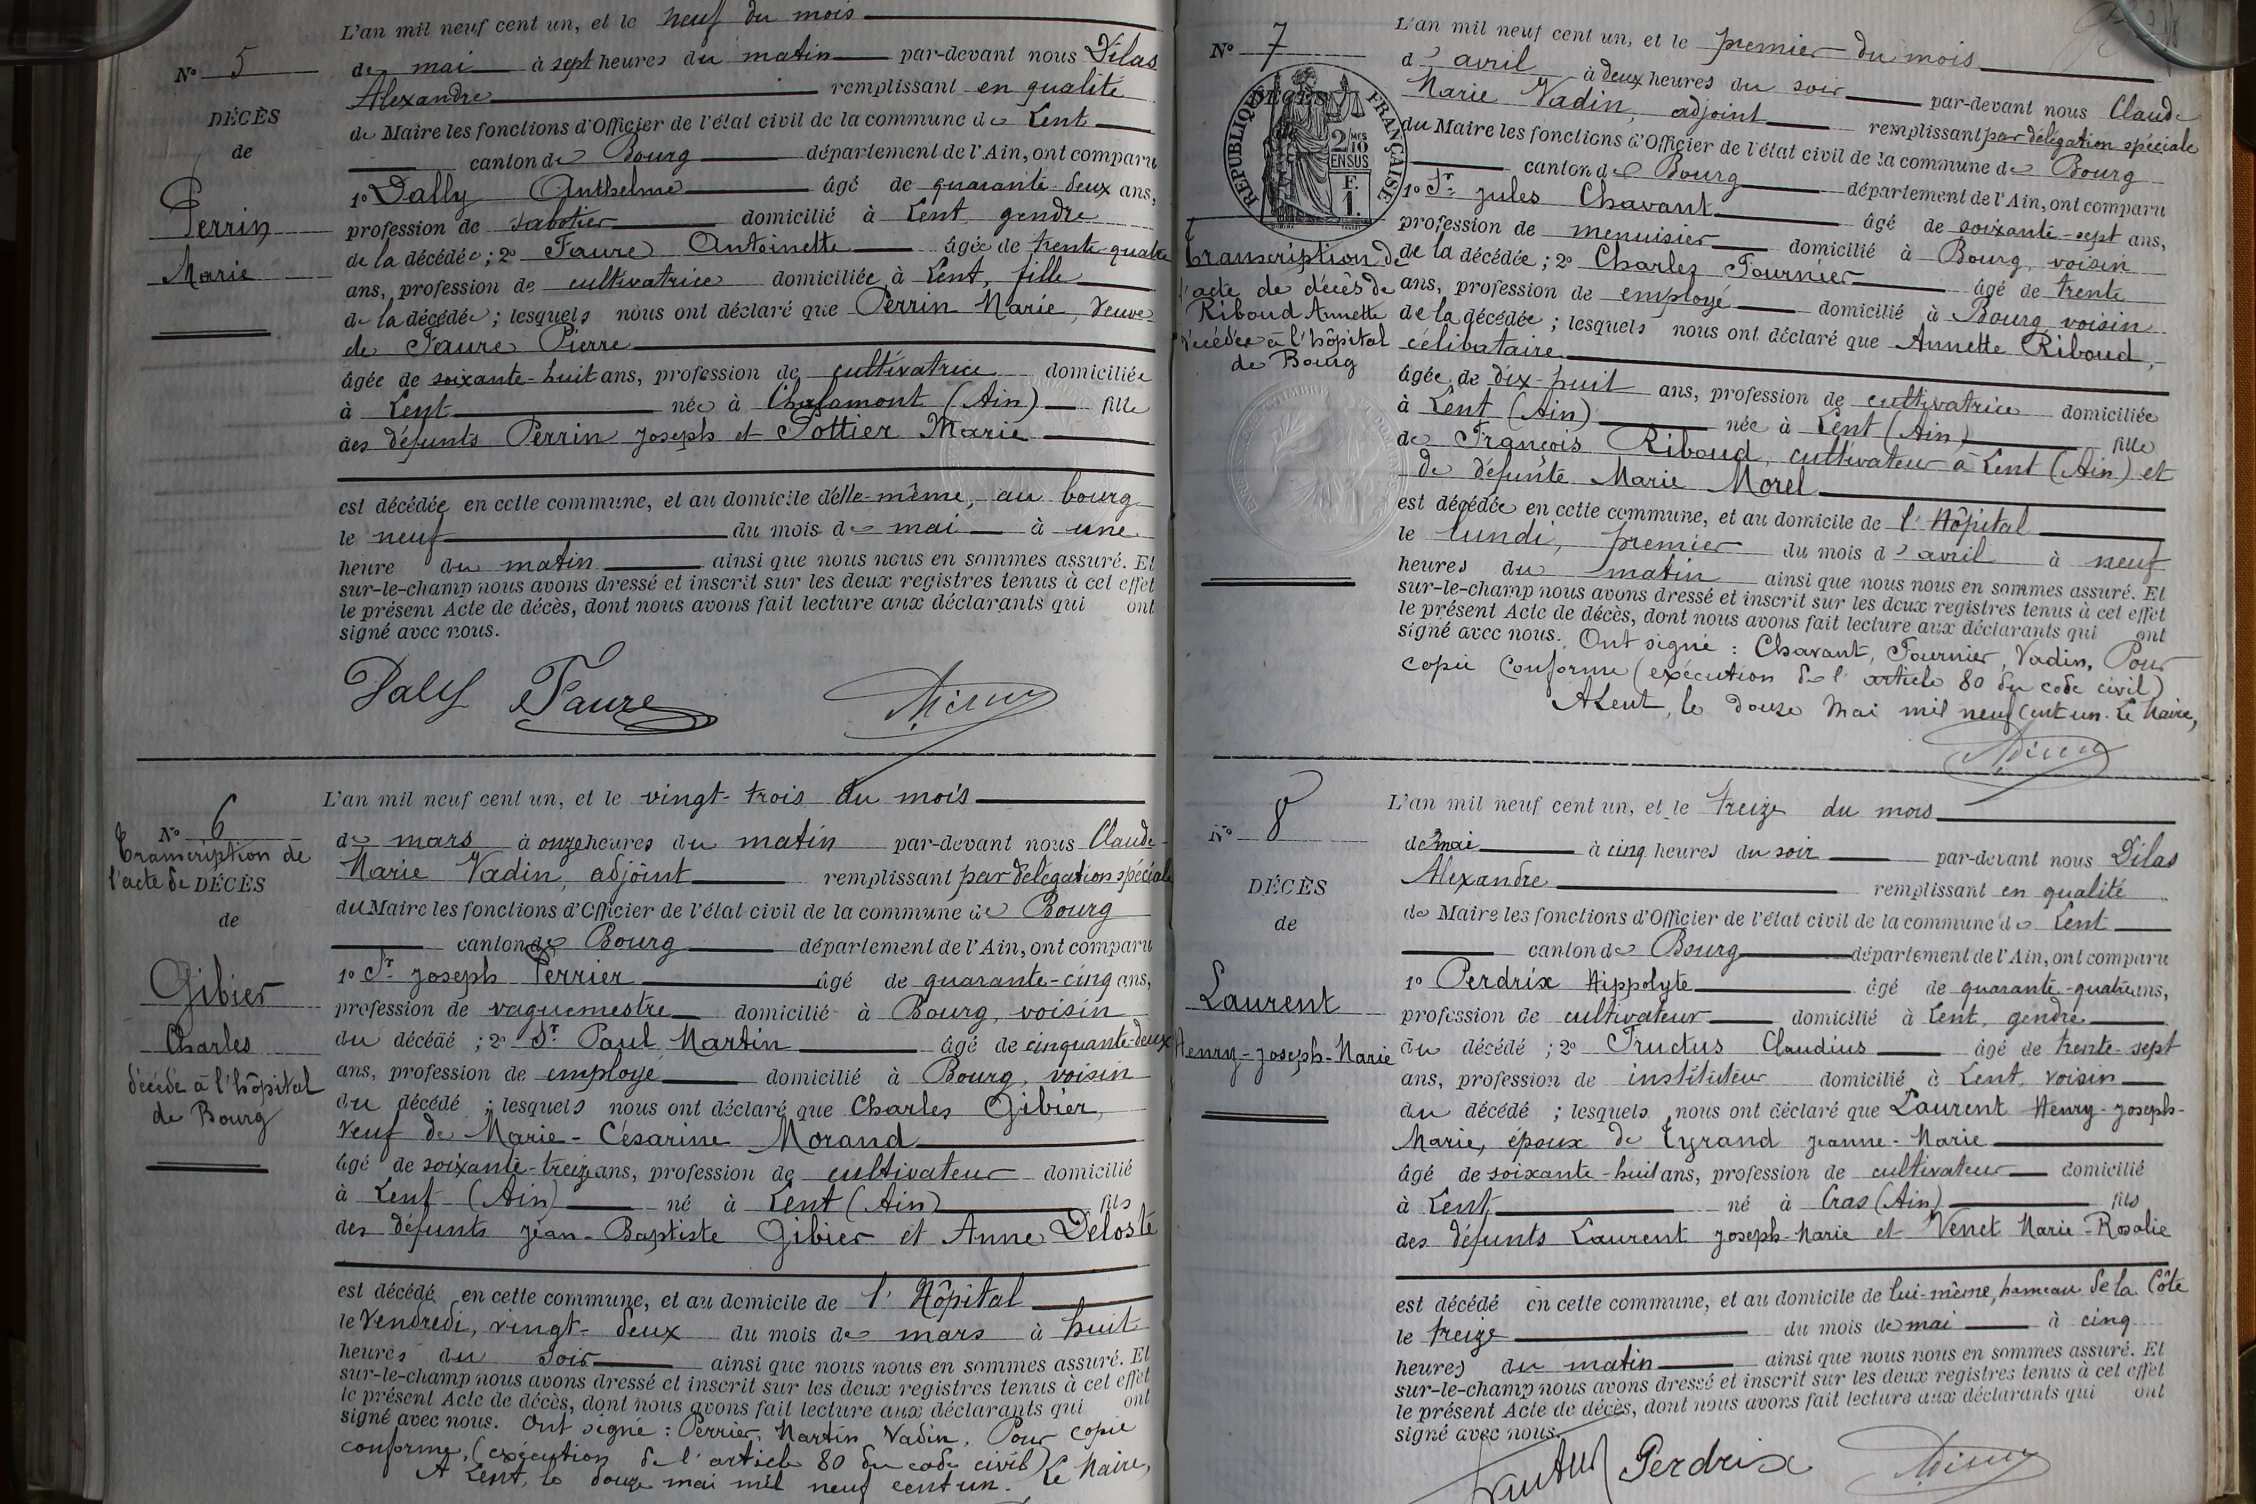 L'an mil neuf cent un, et le neuf du mois
N° 5
de mai à sept heures du matin par-devant nous Dilas
Alexandre remplissant en qualité
DÉCÈS
de Maire les fonctions d'Officier de l'état civil de la commune de Lent
de
canton de Bourg département de l'Ain, ont comparu
1° Dally Anthelme âgé de quarante-deux ans,
Perrin
profession de sabotier domicilié à Lent, gendre
de la décédée; 2° Faure Antoinette âgée de trente-quatre
Marie
ans, profession de cultivatrice domiciliée à Lent, fille
de la décédée; lesquels nous ont déclaré que Perrin Marie, veuve
de Faure Pierre
âgée de soixante-huit ans, profession de cultivatrice domiciliée
à Lent née à Chalamont (Ain) fille
des défunts Perrin Joseph et Pottier Marie
est décédée en cette commune, et au domicile d'elle-même, au bourg
le neuf du mois de mai à une
heure du matin ainsi que nous nous en sommes assuré. Et
sur-le-champ nous avons dressé et inscrit sur les deux registres tenus à cet effet
le présent Acte de décès, dont nous avons fait lecture aux déclarants qui ont
signé avec nous.
Dally Faure
L'an mil neuf cent un, et le vingt-trois du mois
N° 6
de mars à onze heures du matin par-devant nous Claude-
Transcription de
l'acte de DÉCÈS
Marie Vadin, adjoint remplissant par délégation spéciale
du Maire les fonctions d'Officier de l'état civil de la commune de Bourg
de
canton de Bourg département de l'Ain, ont comparu
1° Sr Joseph Perrier âgé de quarante-cinq ans,
Gibier
profession de vaguemestre domicilié à Bourg, voisin
Charles
du décédé; 2° Sr Paul Martin âgé de cinquante-deux
décédé à l'hôpital
ans, profession de employé domicilié à Bourg, voisin
de Bourg
du décédé; lesquels nous ont déclaré que Charles Gibier,
veuf de Marie-Césarine Morand
âgé de soixante-treize ans, profession de cultivateur domicilié
à Lent (Ain) né à Lent (Ain) fils
des défunts Jean-Baptiste Gibier et Anne Deloste
est décédé en cette commune, et au domicile de l'Hôpital
le vendredi, vingt-deux du mois de mars à huit
heures du soir ainsi que nous nous en sommes assuré. Et
sur-le-champ nous avons dressé et inscrit sur les deux registres tenus à cet effet
le présent Acte de décès, dont nous avons fait lecture aux déclarants qui ont
signé avec nous. Ont signé: Perrier, Martin, Vadin. Pour copie
conforme, (exécution de l'article 80 du code civil)
A Lent, le douze mai mil neuf cent un. Le Maire,
L'an mil neuf cent un, et le premier du mois
N° 7
d'avril à deux heures du soir par-devant nous Claude
Marie Vadin, adjoint remplissant par délégation spéciale
DÉCÈS
RÉPUBLIQUE FRANÇAISE
2/10 MES EN SUS
F. 1.
du Maire les fonctions d'Officier de l'état civil de la commune de Bourg
canton de Bourg département de l'Ain, ont comparu
1° Sr Jules Chavant âgé de soixante-sept ans,
profession de menuisier domicilié à Bourg, voisin
Transcription de
de la décédée; 2° Charles Fournier âgé de trente
l'acte de décès de
ans, profession de employé domicilié à Bourg, voisin
Riboud Annette
de la décédée; lesquels nous ont déclaré que Annette Riboud,
décédée à l'hôpital
célibataire
de Bourg
âgée de dix-huit ans, profession de cultivatrice domiciliée
à Lent (Ain) née à Lent (Ain) fille
de François Riboud, cultivateur à Lent (Ain) et
de défunte Marie Morel
est décédée en cette commune, et au domicile de l'Hôpital
le lundi, premier du mois d'avril à neuf
heures du matin ainsi que nous nous en sommes assuré. Et
sur-le-champ nous avons dressé et inscrit sur les deux registres tenus à cet effet
le présent Acte de décès, dont nous avons fait lecture aux déclarants qui ont
signé avec nous. Ont signé: Chavant, Fournier, Vadin, Pour
copie conforme (exécution de l'article 80 du code civil)
A Lent, le douze mai mil neuf cent un. Le Maire,
L'an mil neuf cent un, et le treize du mois
N° 8
de mai à cinq heures du soir par-devant nous Dilas
Alexandre remplissant en qualité
DÉCÈS
de Maire les fonctions d'Officier de l'état civil de la commune de Lent
de
canton de Bourg département de l'Ain, ont comparu
1° Perdrix Hippolyte âgé de quarante-quatre ans,
Laurent
profession de cultivateur domicilié à Lent, gendre
Henry-Joseph-Marie
du décédé; 2° Fructus Claudius âgé de trente-sept
ans, profession de instituteur domicilié à Lent, voisin
du décédé; lesquels nous ont déclaré que Laurent Henry-Joseph-
Marie, époux de Tyrand Jeanne-Marie
âgé de soixante-huit ans, profession de cultivateur domicilié
à Lent né à Cras (Ain) fils
des défunts Laurent Joseph-Marie et Venet Marie-Rosalie
est décédé en cette commune, et au domicile de lui-même, hameau de la Côte
le treize du mois de mai à cinq
heures du matin ainsi que nous nous en sommes assuré. Et
sur-le-champ nous avons dressé et inscrit sur les deux registres tenus à cet effet
le présent Acte de décès, dont nous avons fait lecture aux déclarants qui ont
signé avec nous.
Fructus Perdrix